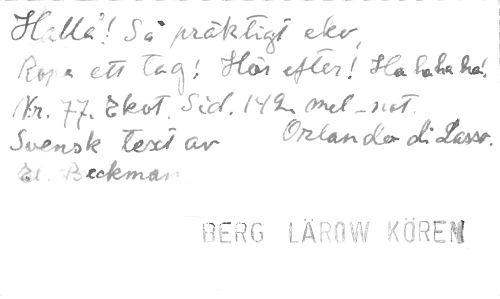 Hallå! Så präktigt eko,
Ropa ett tag! Hör efter! Ha haha ha!
Nr. 77. Ekot. Sid. 142 mel-not.
Svensk text av Orlando di Lasso.
Beckman
BERG LÄROW KÖREN